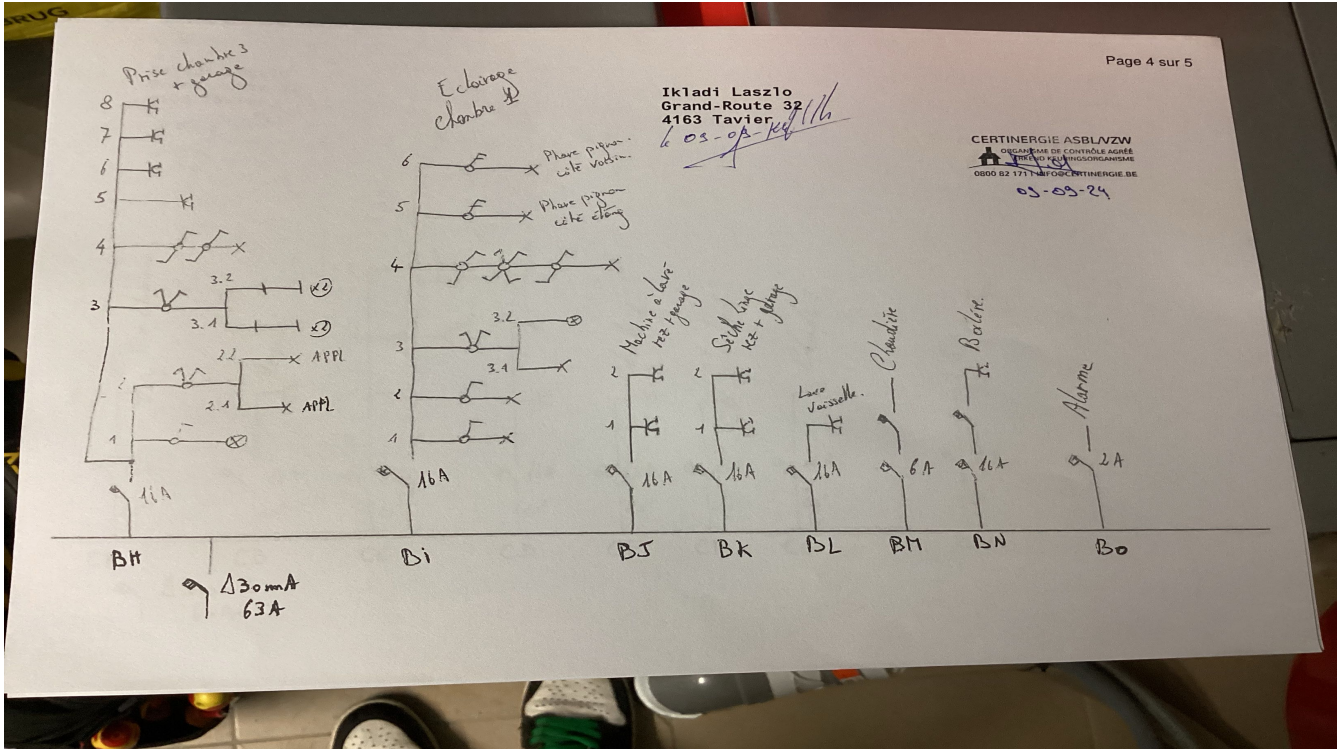 BRUG
Page 4 sur 5
Ikladi Laszlo
Grand-Route 32
4163 Tavier
CERTINERGIE ASBL/VZW
ORGANISME DE CONTRÔLE AGRÉÉ
ERKEND KEURINGSORGANISME
0800 82 171 | INFO@CERTINERGIE.BE
09-09-24
Prise chambre 3
+ garage
8
7
6
5
4
3
3.2
x2
3.1
x2
2
2.2
APPL
2.1
APPL
1
16A
BH
Δ30mA
63A
Eclairage
chambre 1
6
Phare pignon
côté voisin
5
Phare pignon
côté étang
4
3
3.2
3.1
2
1
16A
Bi
Machine à laver
rez + garage
2
1
16A
BJ
Sèche linge
rez + garage
2
1
16A
BK
Lave
vaisselle.
16A
BL
Chaudière
6A
BM
16A
BN
Alarme
2A
Bo